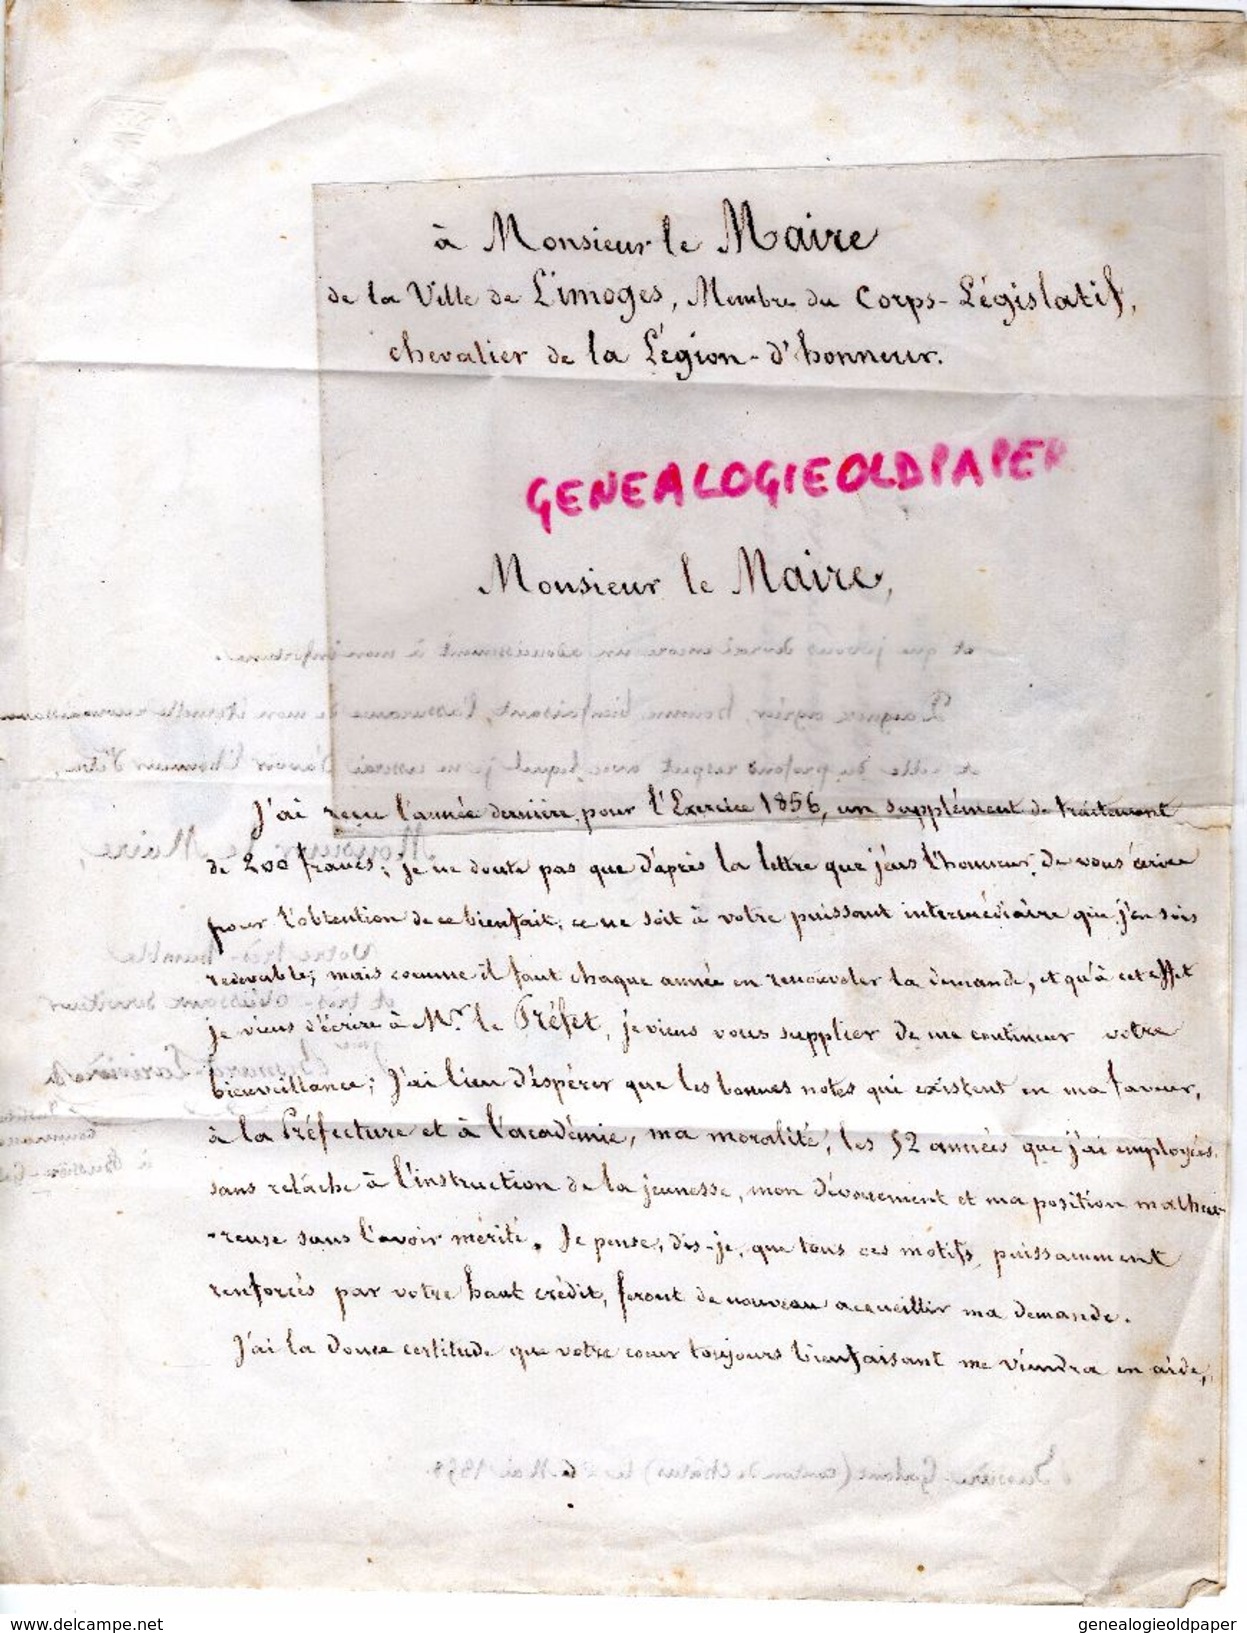 à Monsieur le Maire
de la Ville de Limoges, Membre du Corps-Législatif,
chevalier de la Légion-d'honneur.
GENEALOGIEOLDPAPER
Monsieur le Maire,
J'ai reçu l'année dernière, pour l'Exercice 1856, un supplément de traitement
de 200 francs; je ne doute pas que d'après la lettre que j'eus l'honneur de vous écrire
pour l'obtention de ce bienfait, ce ne soit à votre puissant intermédiaire que j'en sois
redevable; mais comme il faut chaque année en renouveler la demande, et qu'à cet effet
je viens d'écrire à Mr. le Préfet, je viens vous supplier de me continuer votre
bienveillance; J'ai lieu d'espérer que les bonnes notes qui existent en ma faveur,
à la Préfecture et à l'académie, ma moralité, les 52 années que j'ai employées
sans relâche à l'instruction de la jeunesse, mon dévouement et ma position malheu-
-reuse sans l'avoir mérité. Je pense, dis-je, que tous ces motifs, puissamment
renforcés par votre haut crédit, feront de nouveau accueillir ma demande.
J'ai la douce certitude que votre coeur toujours bienfaisant me viendra en aide,
www.delcampe.net
genealogieoldpaper